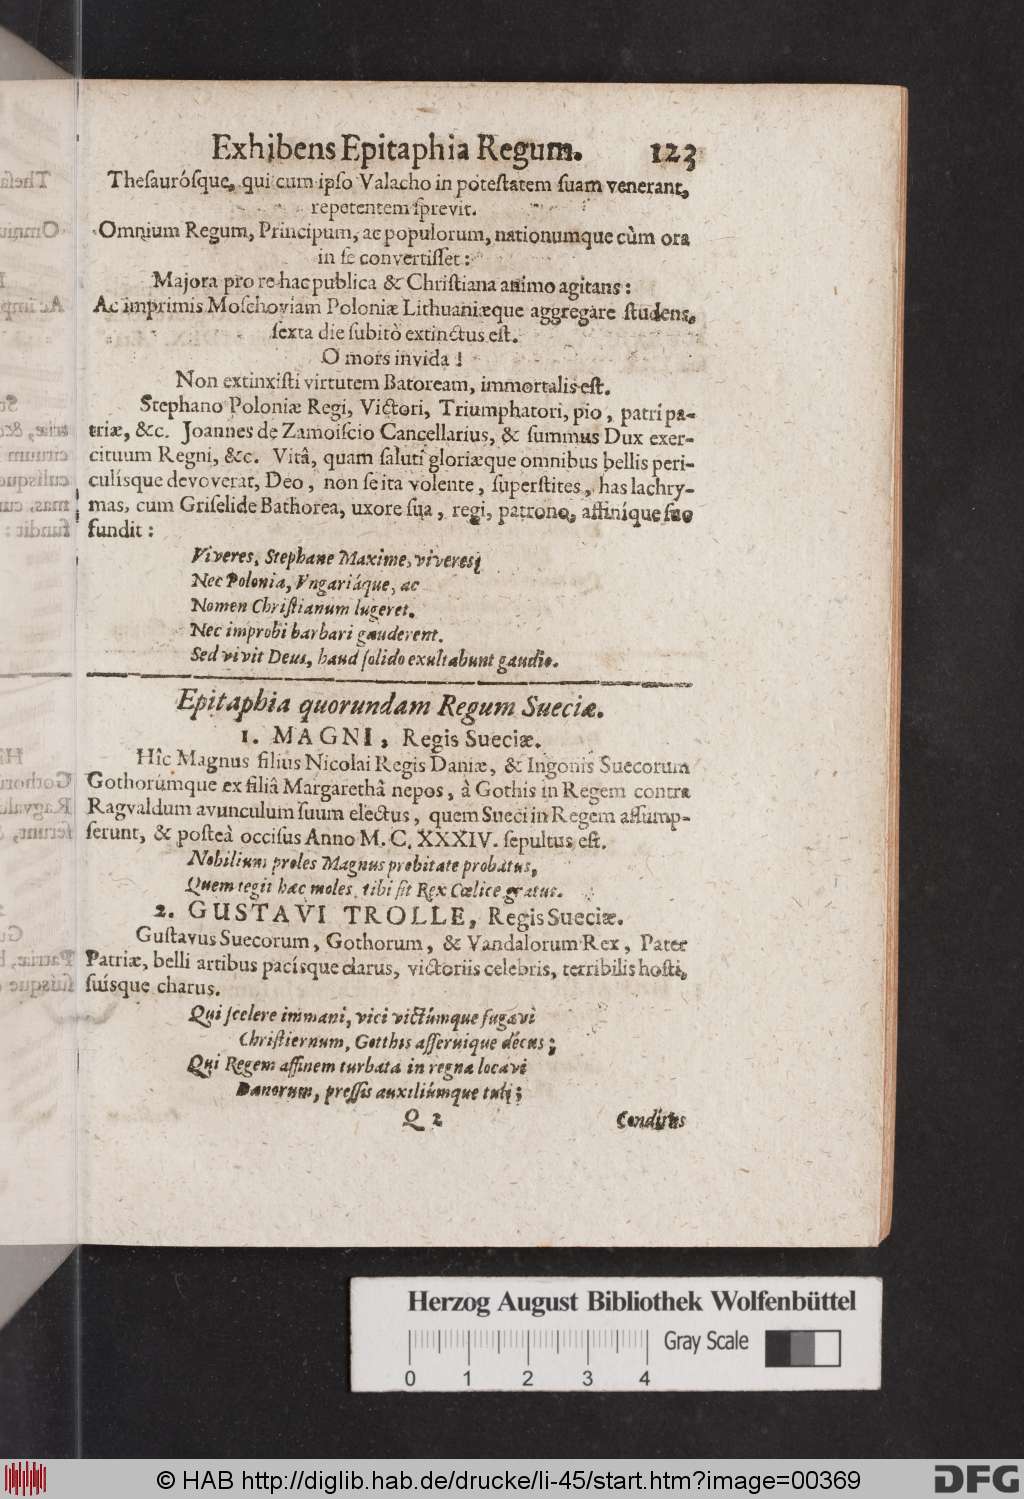 Exhibens Epitaphia Regum. 123
Thesaurósque, qui cum ipso Valacho in potestatem suam venerant,
repetentem sprevit.
Omnium Regum, Principum, ac populorum, nationumque cùm ora
in se convertisset:
Majora pro re hac publica & Christiana animo agitans:
Ac imprimis Moschoviam Poloniæ Lithuaniæque aggregare studens,
sexta die subitò extinctus est.
O mors invida!
Non extinxisti virtutem Batoream, immortalis est.
Stephano Poloniæ Regi, Victori, Triumphatori, pio, patri pa-
triæ, &c. Joannes de Zamoiscio Cancellarius, & summus Dux exer-
cituum Regni, &c. Vitâ, quam saluti gloriæque omnibus bellis peri-
culísque devoverat, Deo, non se ita volente, superstites, has lachry-
mas, cum Griselide Bathorea, uxore sua, regi, patrono, affiníque suo
fundit:
Viveres, Stephane Maxime, viveres;
Nec Polonia, Vngariáque, ac
Nomen Christianum lugeret.
Nec improbi barbari gauderent.
Sed vivit Deus, haud solido exultabunt gaudio.
Epitaphia quorundam Regum Sueciæ.
1. MAGNI, Regis Sueciæ.
Hîc Magnus filius Nicolai Regis Daniæ, & Ingonis Suecorum
Gothorúmque ex filiâ Margarethâ nepos, à Gothis in Regem contra
Ragvaldum avunculum suum electus, quem Sueci in Regem assump-
serunt, & posteà occisus Anno M. C. XXXIV. sepultus est.
Nobilium proles Magnus probitate probatus,
Quem tegit hac moles, tibi sit Rex Cœlice gratus.
2. GUSTAVI TROLLE, Regis Sueciæ.
Gustavus Suecorum, Gothorum, & Vandalorum Rex, Pater
Patriæ, belli artibus pacísque clarus, victoriis celebris, terribilis hosti,
suísque charus.
Qui scelere immani, vici victúmque fugavi
Christiernum, Gotthis asseruique décus;
Qui Regem affinem turbata in regna locavi
Danorum, pressis auxiliúmque tuli;
Q 2 Conditus
Herzog August Bibliothek Wolfenbüttel
Gray Scale
0 1 2 3 4
© HAB http://diglib.hab.de/drucke/li-45/start.htm?image=00369
DFG